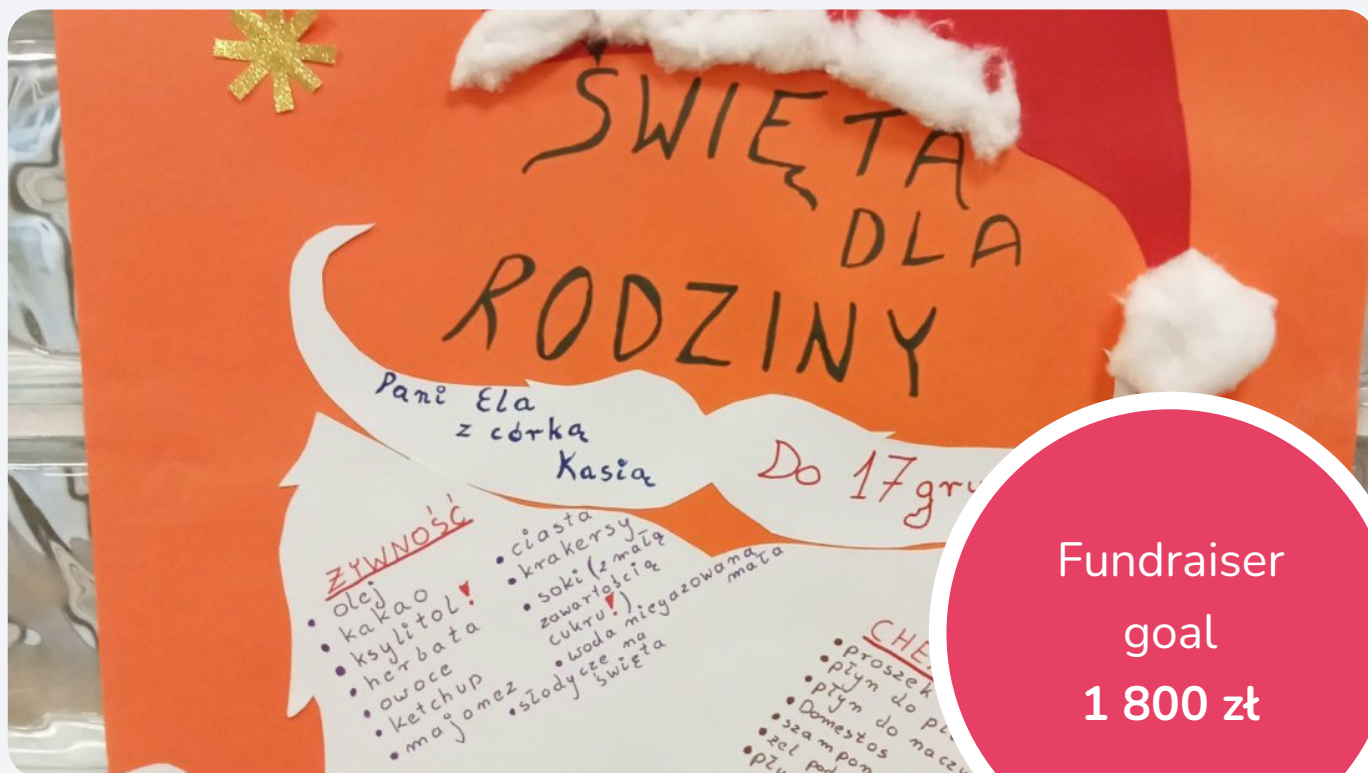 ŚWIĘTA
DLA
RODZINY
Pani Ela
z córką
Kasią
Do 17 gru
ŻYWNOŚĆ
• olej
• kakao
• ksylitol!
• herbata
• owoce
• ketchup
• majonez
• ciasta
• krakersy
• soki (z małą
zawartością
cukru!)
• woda niegazowana
mała
• słodycze na
święta
• proszek
• płyn do
• płyn do naczy
• Domestos
• szampon
• żel pod
Fundraiser
goal
1 800 zł